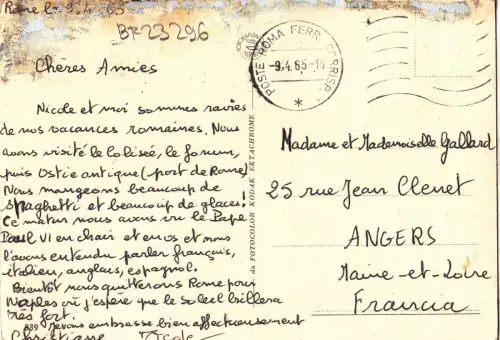 Rome le 9.4.65
BF23296
Chères Amies
Nicole et moi sommes ravies
de nos vacances romaines. Nous
avons visité le Colisée, le forum,
puis Ostie antique (port de Rome)
Nous mangeons beaucoup de
spaghetti et beaucoup de glaces.
Ce matin nous avons vu le Pape
Paul VI en chair et en os et nous
l'avons entendu parler français,
italien, anglais, espagnol.
Bientôt nous quitterons Rome pour
Naples où j'espère que le soleil brillera
très fort.
839 Je vous embrasse bien affectueusement
Christiane Nicole
da FOTOCOLOR KODAK EKTACHROME
POSTE ROMA FERR. CORRISP.
-9.4.65-
Madame et Mademoiselle Gallard
25 rue Jean Clenet
ANGERS
Maine-et-Loire
Francia